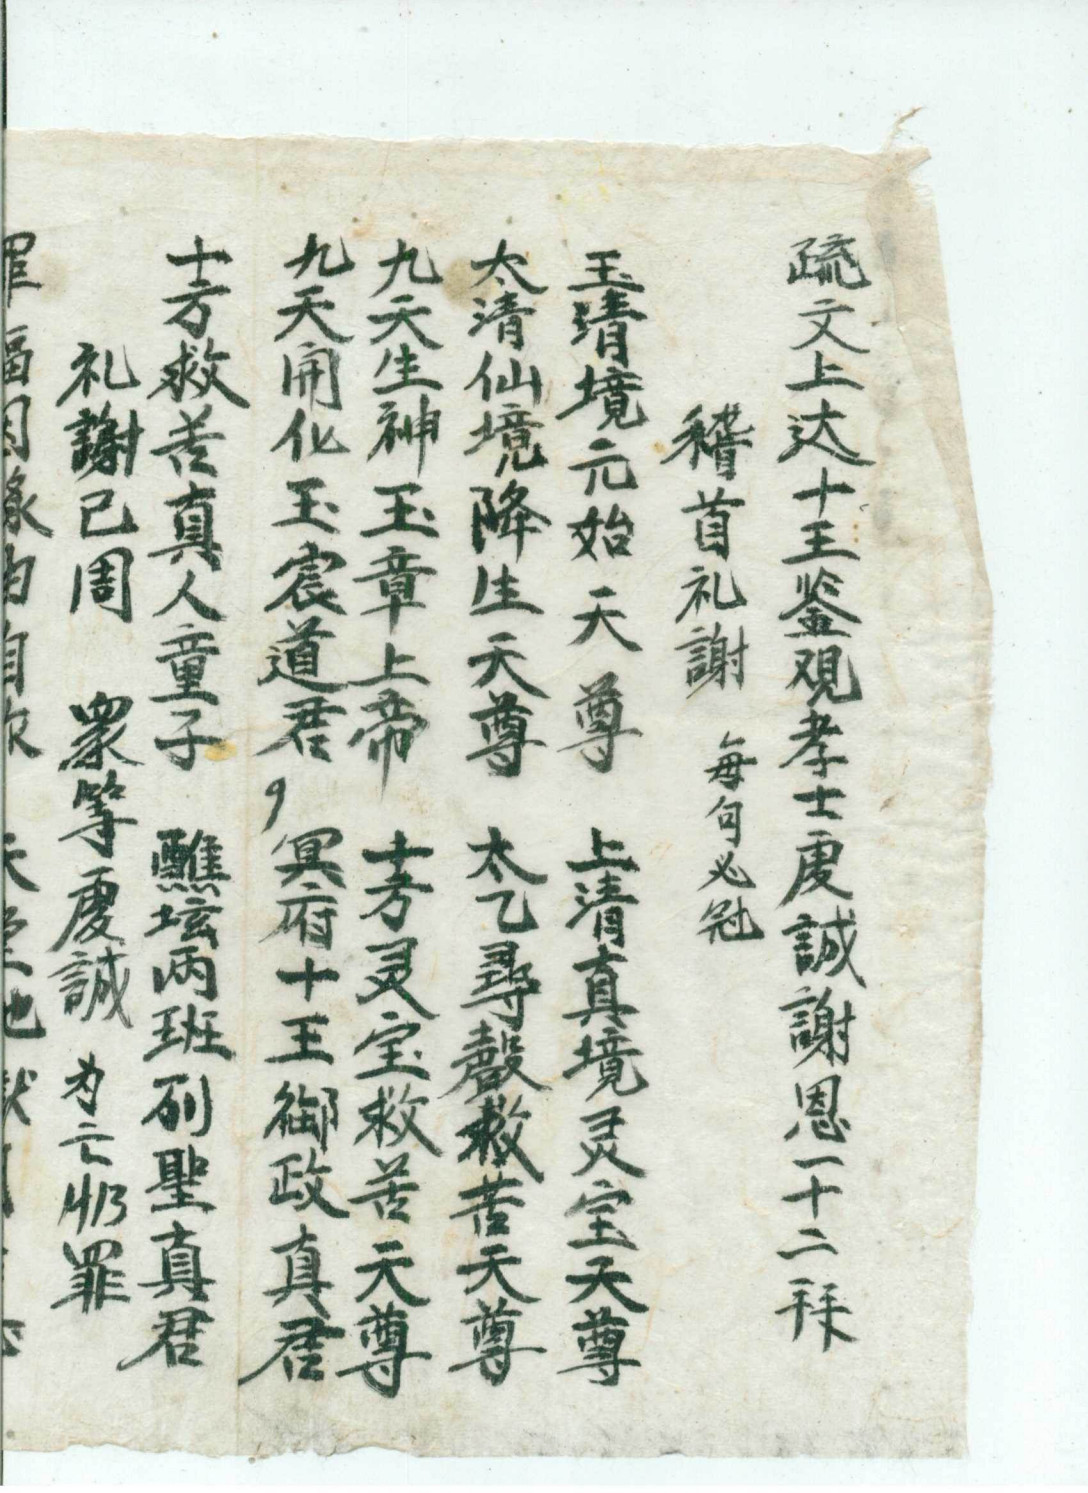 疏文上达十王鉴观孝士虔誠謝恩一十二拜
稽首礼謝 每句必冠
玉清境元始天尊 上清真境灵宝天尊
太清仙境降生天尊 太乙尋聲救苦天尊
九天生神玉章上帝 十方灵宝救苦天尊
九天開化玉宸道君 冥府十王御政真君
十方救苦真人童子 醮坛两班列聖真君
礼謝已周 衆等虔誠 为亡 罪
罪福因缘 自 天堂地獄